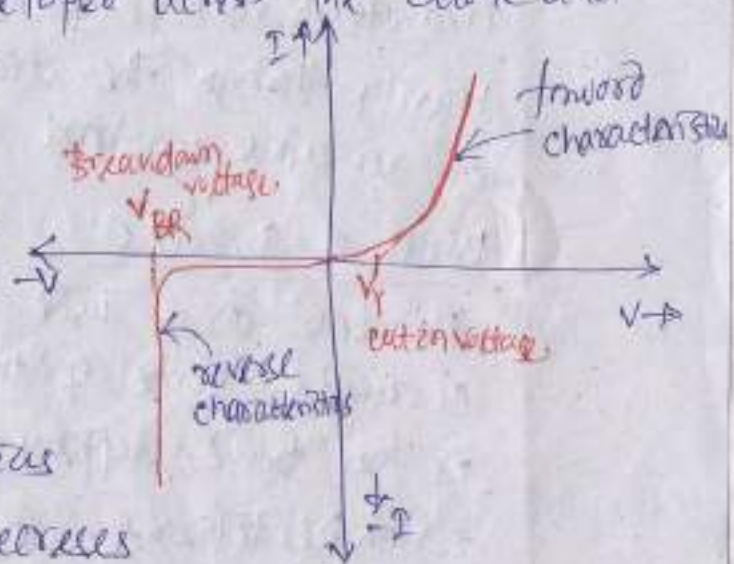 across the
I↑
forword
characteristics
Breakdown
voltage.
V BR
-V
Vγ
V→
cutin voltage.
reverse
characteristics
-I
ecreses